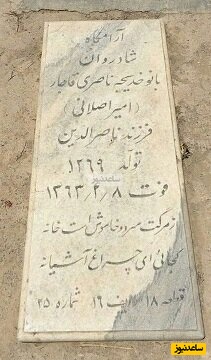 آرامگاه
شادروان
بانو خدیجه ناصری قاجار
(امیراصلانی)
فرزند ناصرالدین
تولد ۱۲۶۹
فوت ۱۳۶۳/۲/۸
ز مرگت سرد و خاموش است خانه
کجائی ای چراغ آشیانه
قطعه ۱۸ ردیف ۱۶ شماره ۲۵
ساعدنیوز